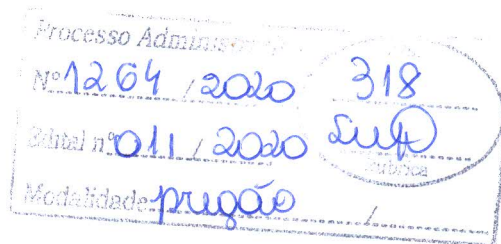 Processo Administrativo
Nº 1264 / 2020 318
Edital nº 011 / 2020
Rubrica
Modalidade pregão /